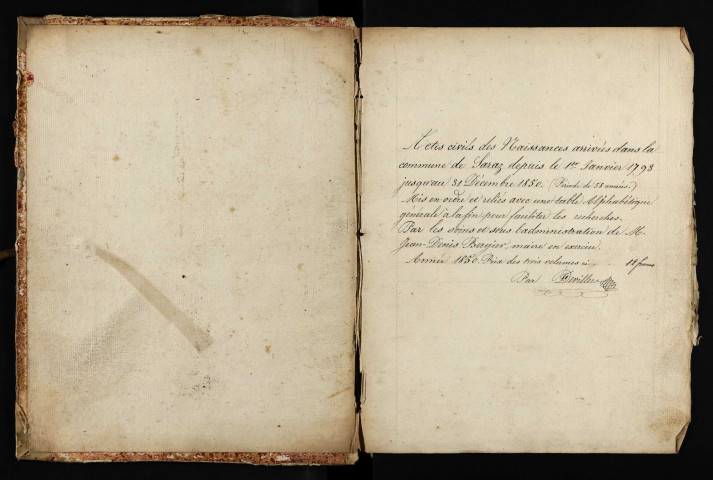 Actes civils des Naissances arrivées dans la
commune de Saraz depuis le 1er Janvier 1793
jusqu'au 31 Décembre 1850. (Période de 58 années.)
Mis en ordre et reliés avec une table Alphabétique
générale à la fin pour faciliter les recherches.
Par les soins et sous l'administration de M.
Jean-Denis Bergier, maire en exercice.
Année 1850. Prix des trois volumes 18 francs
Par Devillers